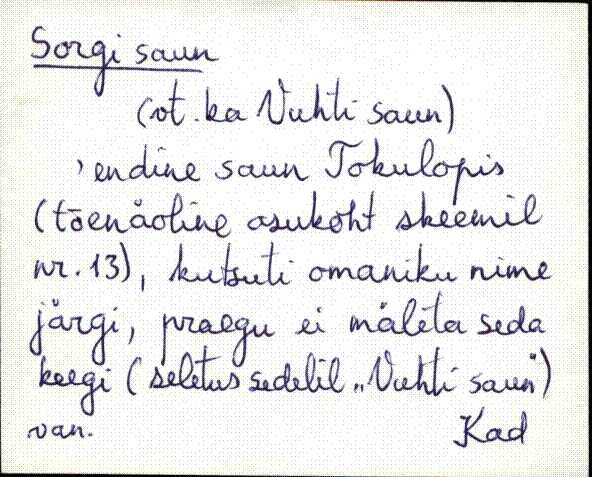 Sorgi saun
(vt. ka Vuhti saun)
, endine saun Tokulopis
(tõenäoline asukoht skeemil
nr. 13), kutsuti omaniku nime
järgi, praegu ei mäleta seda
keegi (seletus sedelil „Vuhti saun")
van. Kad